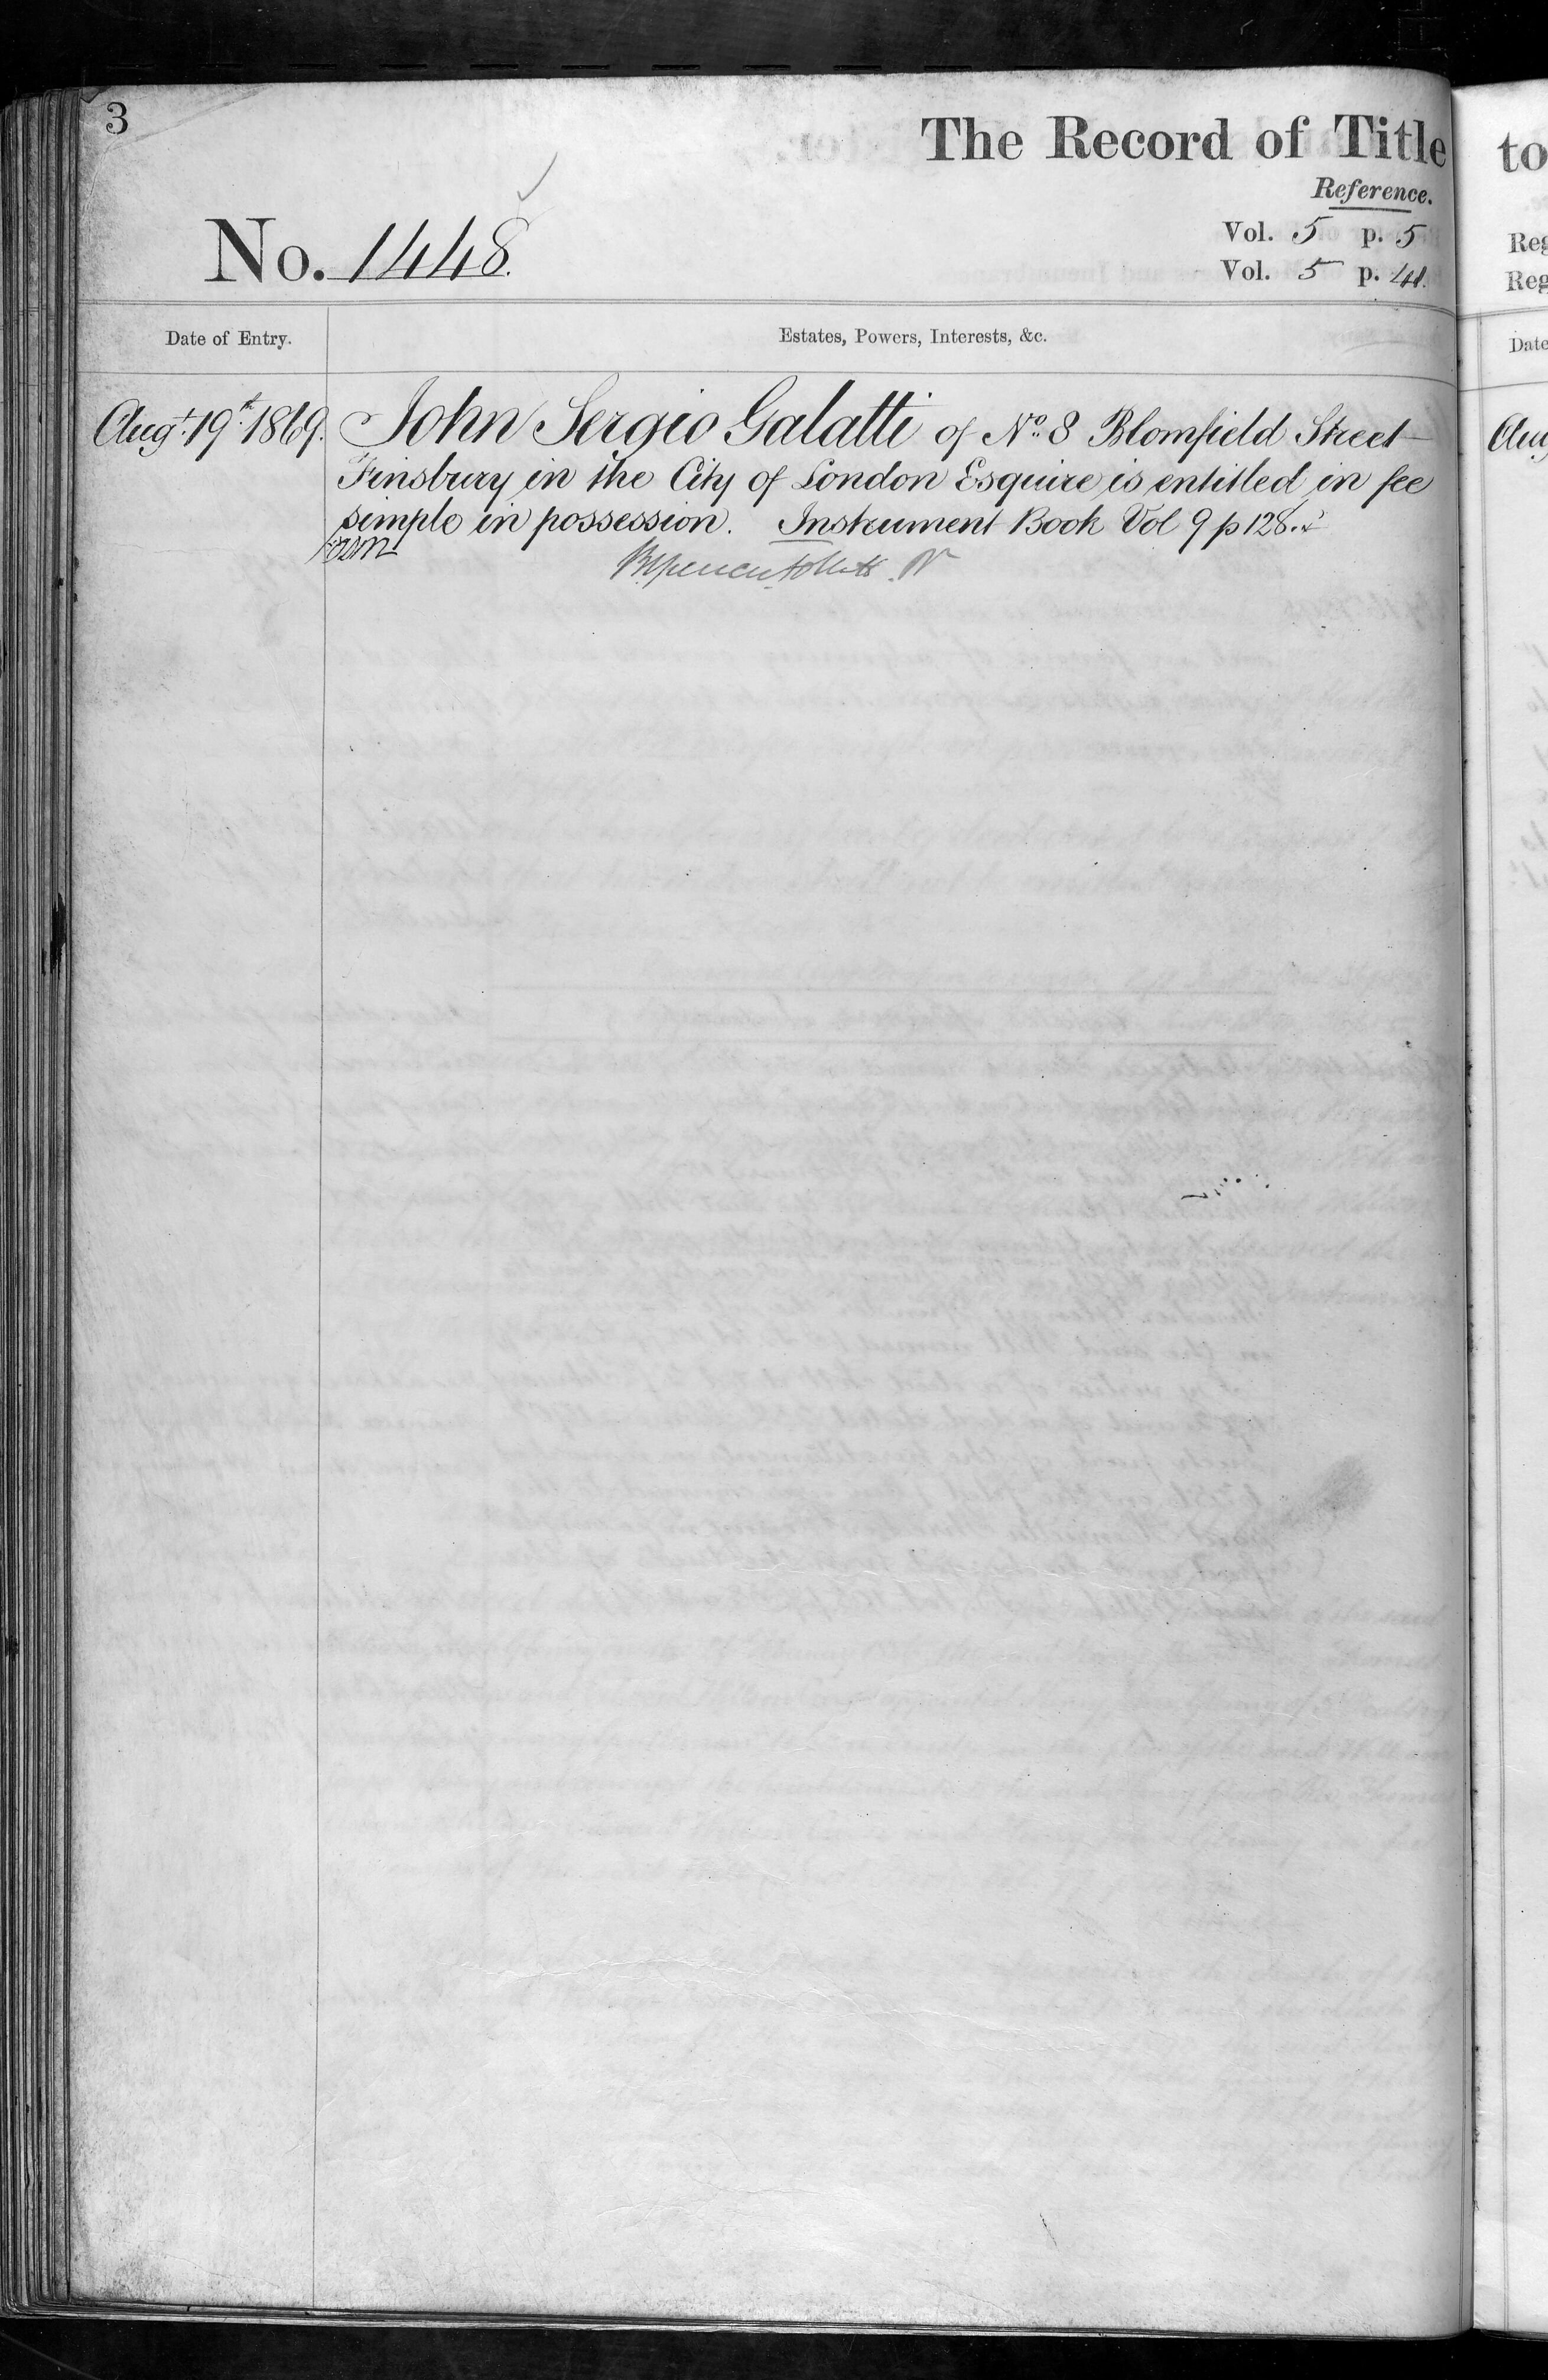 3
The Record of Title
Reference.
No. 1448.
Vol. 5 p. 5
Vol. 5 p. 41.
Date of Entry.
Estates, Powers, Interests, &c.
Augt. 19th 1869. John Sergio Galatti of No. 8 Blomfield Street
Finsbury in the City of London Esquire is entitled in fee
simple in possession. Instrument Book Vol 9 p 128.
to
Reg
Reg
Date
Aug